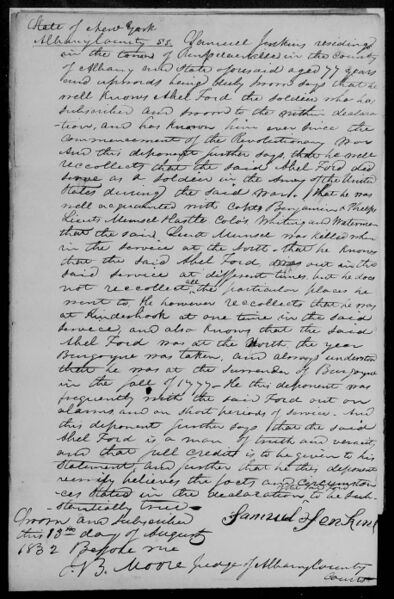 State of New York
Albany County SS. Samuel Jenkins residing
in the town of Rensselaerville in the County
of Albany and State aforesaid aged 77 years
and upwards being duly sworn says that he
well knows Abel Ford the soldier who has
subscribed and sworn to the within declara
tions, and has known him ever since the
commencement of the Revolutionary War
And this deponent further says that he well
reccollects that the said Abel Ford did
serve as a soldier in the Army of the United
States during the said War. That he was
well acquainted with Capts Benjamin Phelps
Lieuts Munsel Hastle Colo's Whiting and Waterman
that the said Lieut Munsel was killed when
in the service at the South - that he knows
that the said Abel Ford was out in the
said service at different times, but he does
not recollect all the particular places he
went to. He however reccollects that he was
at Kinderhook at one time in the said
service, and also knows that the said
Abel Ford was at the North the year
Burgoyne was taken, and always understood
that he was at the Surrender of Burgoyne
in the fall of 1777 - He this deponent was
frequently with the said Ford out on
alarms and on short periods of service. And
this deponent further says that the said
Abel Ford is a man of truth and veracity
and that full credit is to be given to his
statement and further that he this deponent
believes the facts and circumstan
ces stated in the declaration, to be sub
stantially true -
Sworn and subscribed Samuel Jenkins
this 13th day of August
1832 Before me
J. B. Moore judge of Albany County
Courts